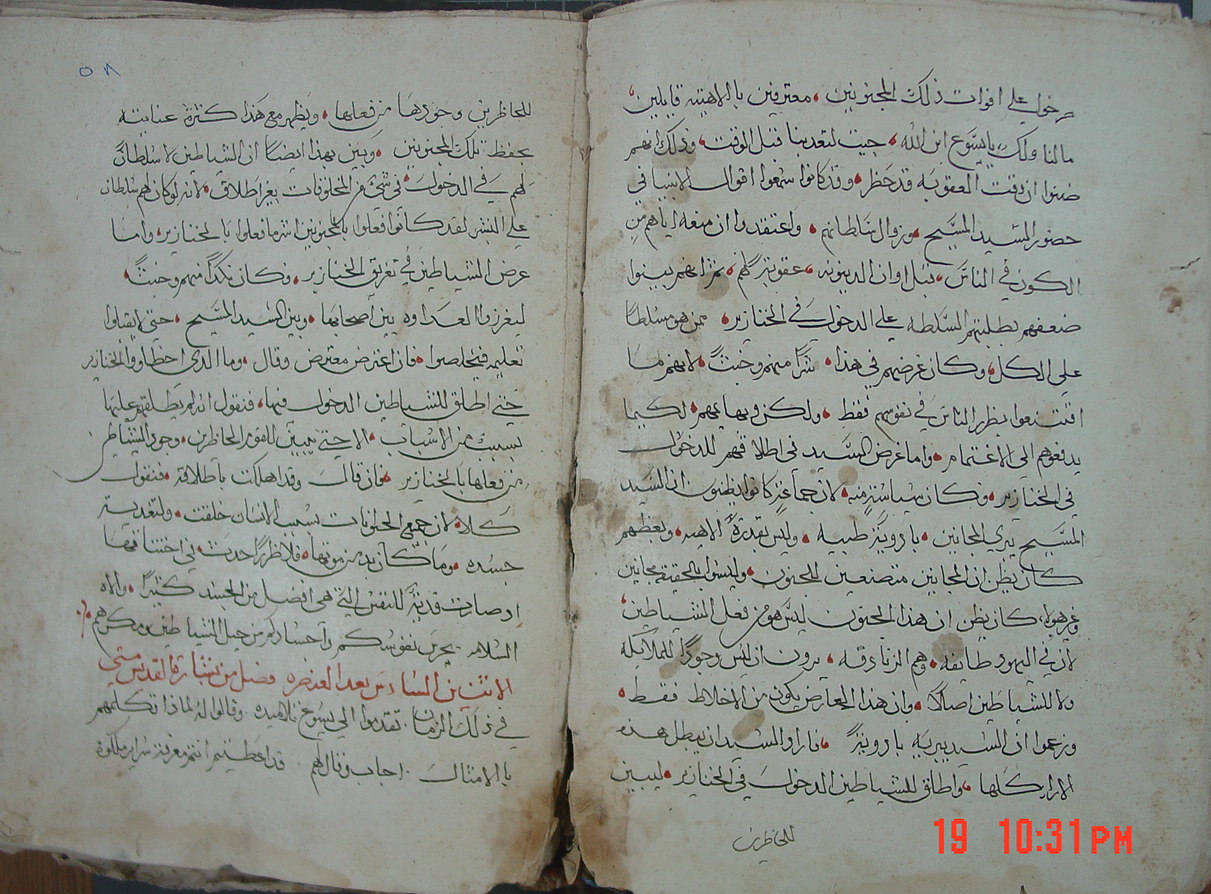 صرخوا على افواه ذلك المجنونين، معترفين بالاهيته قايلين،
مالنا ولك يا يسوع ابن الله، جيت لتعذبنا قبل الوقت، وذلك انهم
ظنوا ان وقت العقوبه قد حظر، وقد كانوا سمعوا اقوال الانبيا في
حضور السيد المسيح، وزوال سلطانهم، واعتقدوا ان منعه اياهم من
الكون في الناس، قبل اوان الدينونه، عقوبة لهم، ثم انهم بينوا
ضعفهم بطلبتهم السلطه على الدخول في الخنازير، ممن هو مسلطا
على الكل، وكان غرضهم في هذا، شرا منهم وخبثا، لانهم ما
اقتنعوا بظرر الناس في نفوسهم فقط، ولكن وبهايمهم، لكيما
يدفعوهم الى الاغتمام، واما غرض السيد في اطلاقهم للدخول
في الخنازير، وكان سياسة منه، لان جماعة كانوا يظنون ان السيد
المسيح يبري المجانين، بادوية طبيه، وليس بقدرة الاهيه، وبعظهم
كان يظن ان المجانين متصنعين الجنون، وليسوا بالحقيقه مجانين
وغير هولا، كان يظن ان هذا الجنون ليس هو من فعل الشياطين،
لان في اليهود طايفه، وهم الزنادقه، يرون ان ليس وجودا للملايكه
ولا للشياطين اصلا، وان هذا العارض يكون من الاخلاط فقط،
وزعموا ان السيد يبريه بادوية، فاراد السيد ان يبطل هذه
الارا كلها، واطلق للشياطين الدخول في الخنازير، ليبين
للحاظرين
٥٨
للحاظرين وجودها من فعلها، ويظهر مع هذا كثرة عنايته
بحفظ تلك المجنونين، وبين بهذا ايضا ان الشياطين لا سلطان
لهم في الدخول، في شي من المخلوقات بغير اطلاق، لانه لو كان لهم سلطان
على البشر لقد كانوا فعلوا بالمجنونين اشر ما فعلوا بالخنازير، واما
غرض الشياطين في تغريق الخنازير، فكان نكدا منهم وخبثا،
ليغرزوا العداوه بين اصحابها، وبين السيد المسيح، حتى لا يقبلوا
تعليمه فيخلصوا، فان اعترض معترض وقال، وما الذي اخطاوا الخنازير
حتى اطلق للشياطين الدخول فيها، فنقول انه لم يطلقهم عليها
بسبب من الاسباب، الا حتى يبين للقوم الحاظرين، وجود الشياطين
من فعلها بالخنازير، وان قال، وقد اهلكت باطلاقه، فنقول
كلا، لان جميع المخلوقات بسبب الانسان خلقت، ولتغذية
جسده، وما كان بد من موتها، فلا ظررا حدث، في اختناقها
اذ صارت فدية للنفس التي هي افضل من الجسد كثيرا، واله
السلامه يحرس نفوسكم واجسادكم من حيل الشياطين ومكرهم
الاثنين السادس بعد العنصره فصل من بشارة القديس متى
في ذلك الزمان تقدموا الى يسوع تلاميذه وقالوا له لماذا تكلمهم
بالامثال، اجاب وقال لهم قد اعطيتم انتم معرفة سراير ملكوة
19 10:31PM